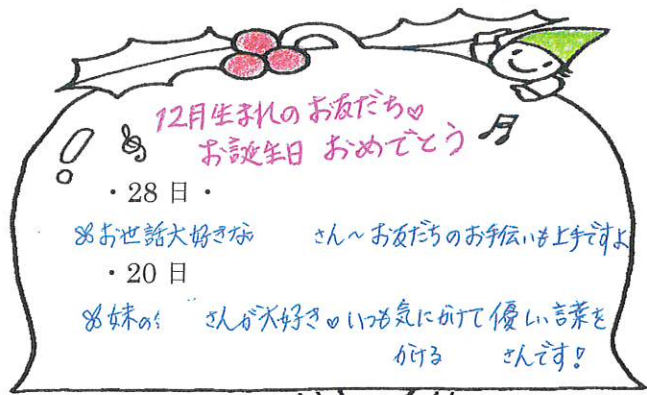 12月生まれのお友だち♡
お誕生日 おめでとう
・28日・
お世話大好きな さん~お友だちのお手伝いも上手ですよ
・20日
妹の さんが大好き♡いつも気にかけて優しい言葉を
かける さんです!